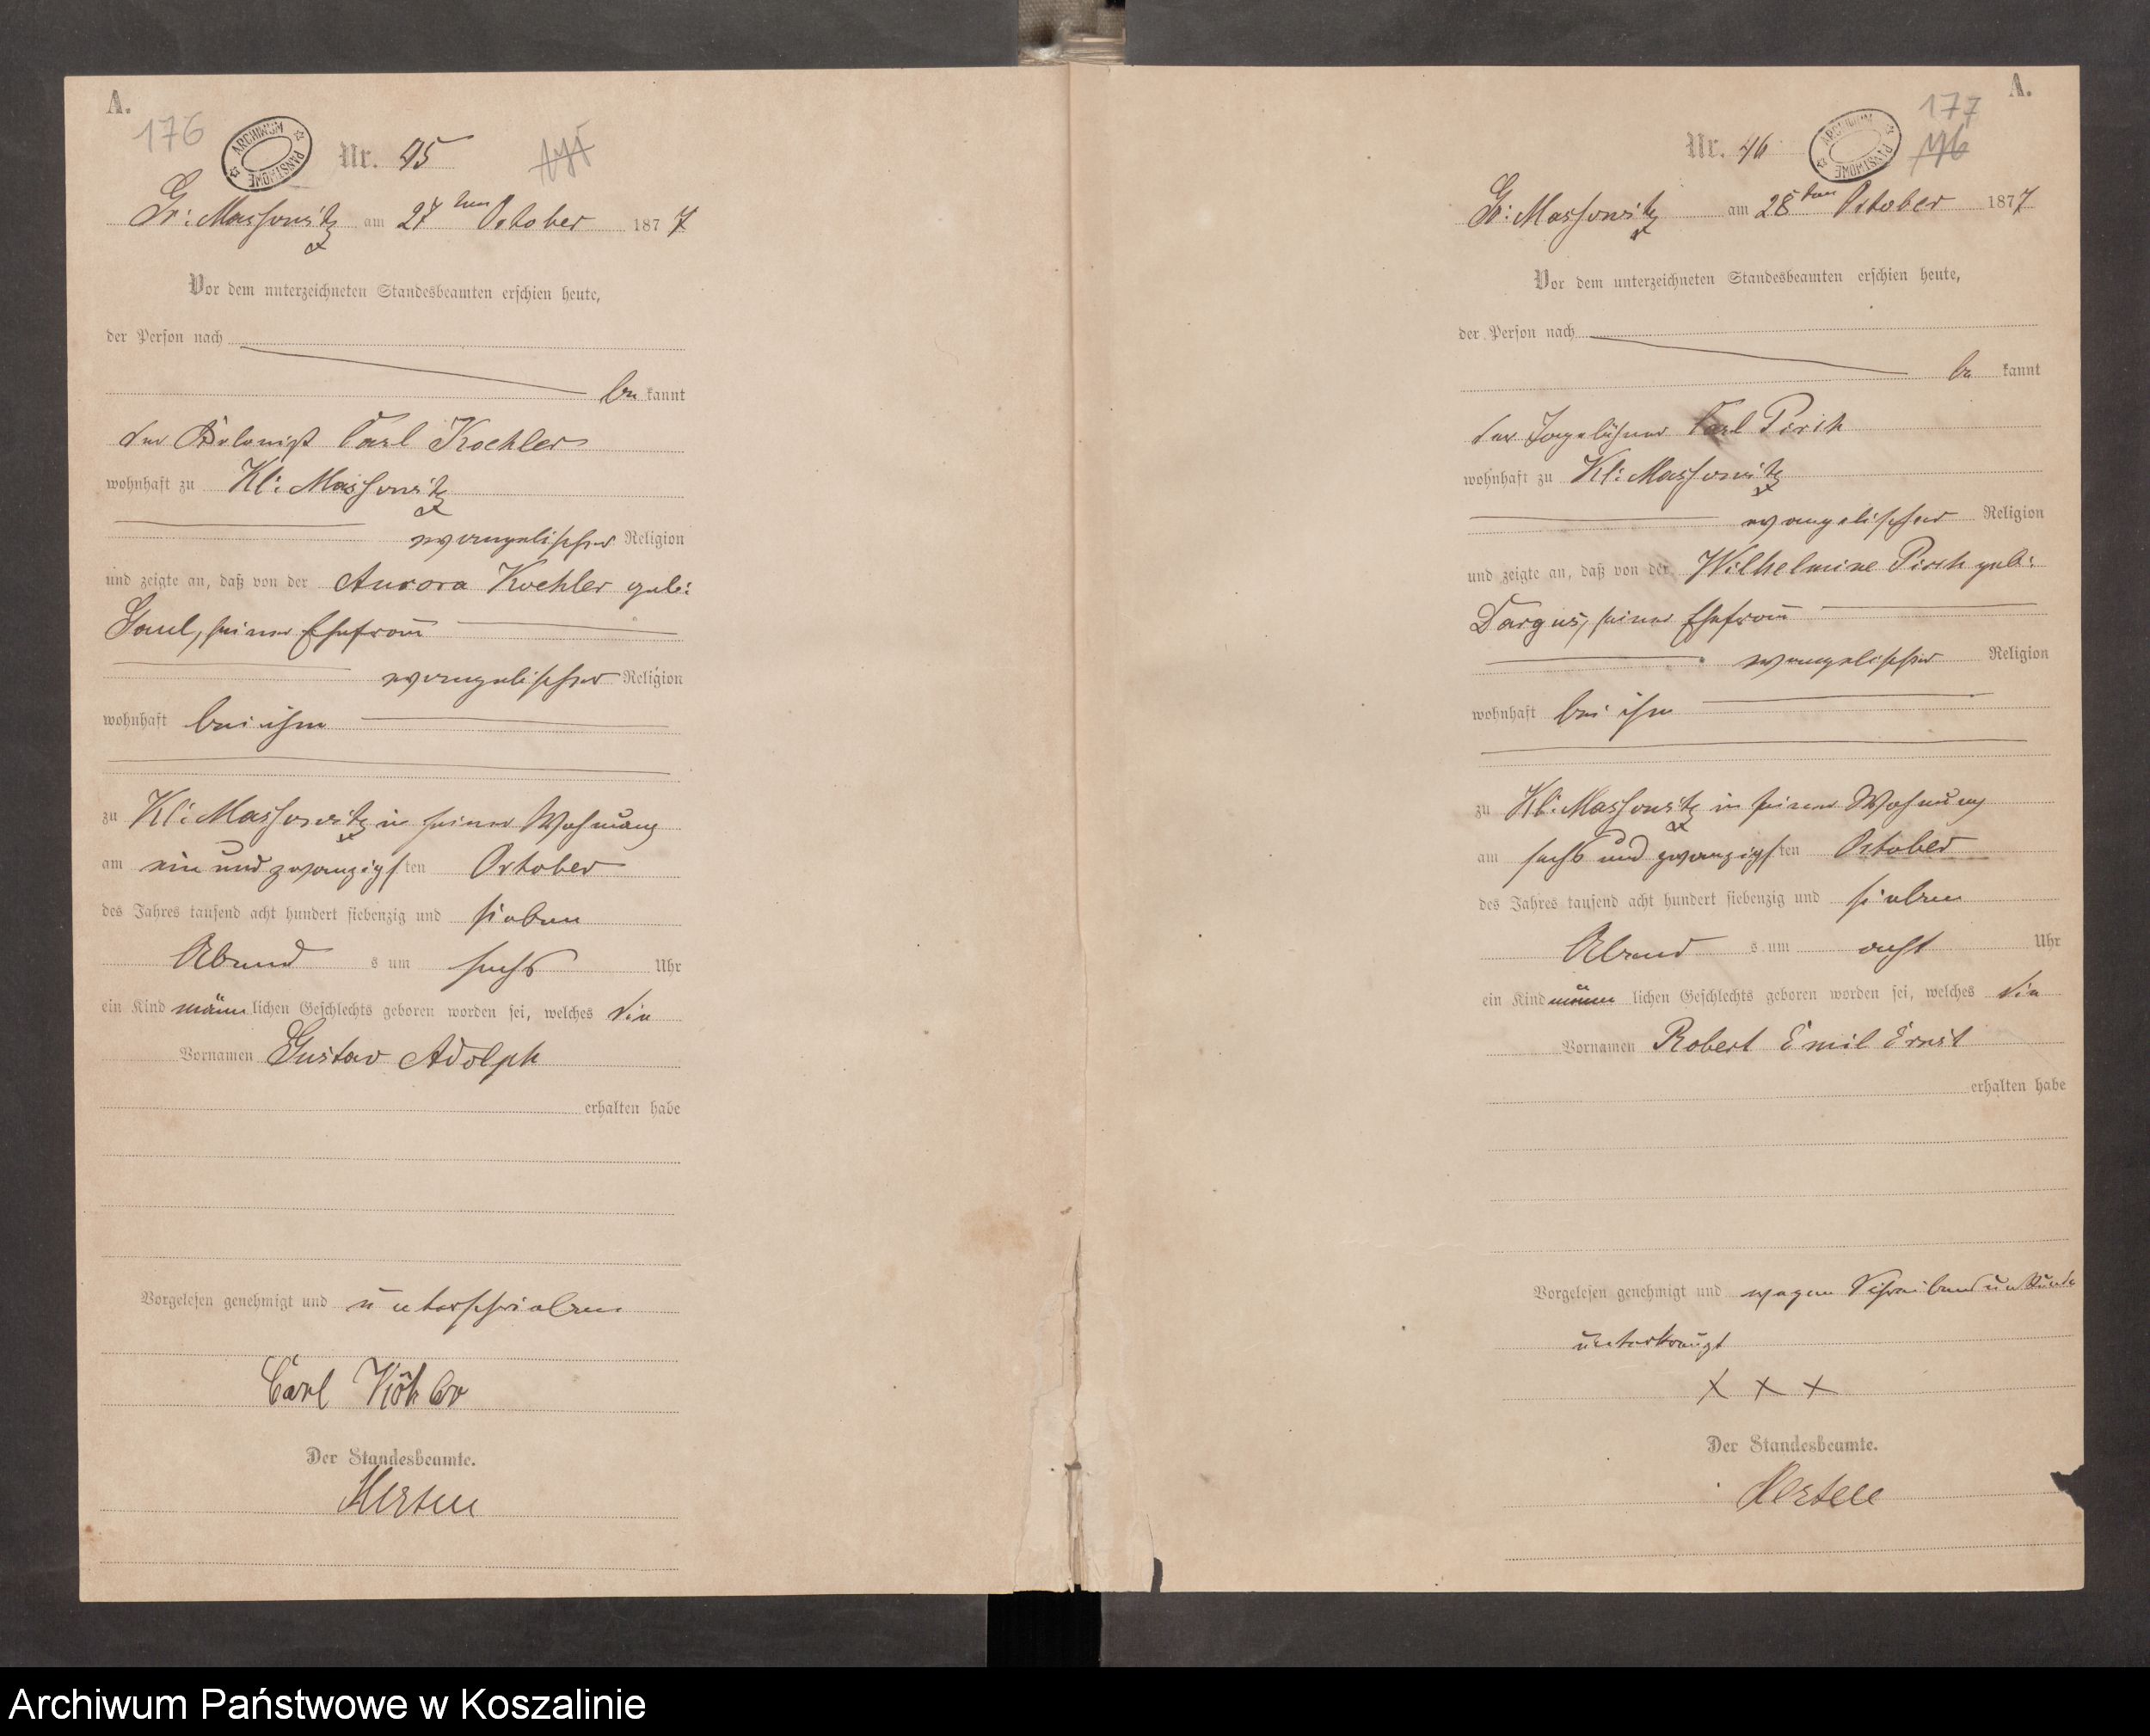 A.
176
ARCHIWUM PAŃSTWOWE
Nr. 45
Gr: Massowitz am 27ten October 1877
Vor dem unterzeichneten Standesbeamten erschien heute,
der Person nach
be kannt
der Kolonist Carl Koehler
wohnhaft zu Kl: Massowitz
evangelischer Religion
und zeigte an, daß von der Aurora Koehler geb:
Gaul, seiner Ehefrau
evangelischer Religion
wohnhaft bei ihm
zu Kl: Massowitz in seiner Wohnung
am ein und zwanzigsten October
des Jahres tausend acht hundert siebenzig und sieben
Abend s um sechs Uhr
ein Kind männlichen Geschlechts geboren worden sei, welches die
Vornamen Gustav Adolph
erhalten habe
Vorgelesen genehmigt und unterschrieben
Carl Köhler
Der Standesbeamte.
A.
177
ARCHIWUM PAŃSTWOWE
Nr. 46
46
Gr: Massowitz am 28ten October 1877
Vor dem unterzeichneten Standesbeamten erschien heute,
der Person nach
be kannt
der Tagelöhner Carl Pirch
wohnhaft zu Kl: Massowitz
evangelischer Religion
und zeigte an, daß von der Wilhelmine Pirch geb:
Dargus, seiner Ehefrau
evangelischer Religion
wohnhaft bei ihm
zu Kl: Massowitz in seiner Wohnung
am sechs und zwanzigsten October
des Jahres tausend acht hundert siebenzig und sieben
Abend s um acht Uhr
ein Kind männlichen Geschlechts geboren worden sei, welches die
Vornamen Robert Emil Ernst
erhalten habe
Vorgelesen genehmigt und wegen Schreibensunkunde
unterkreuzt
X X X
Der Standesbeamte.
Archiwum Państwowe w Koszalinie